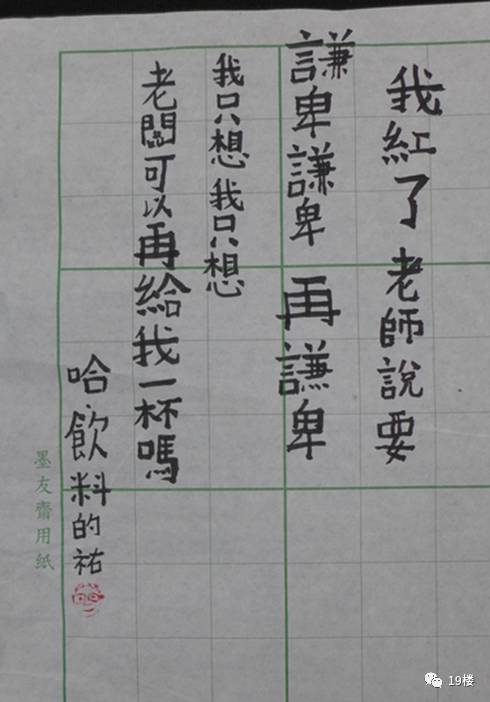 我紅了老師說要
謙卑謙卑再謙卑
我只想我只想
老闆可以再給我一杯嗎
哈飲料的祐
墨友齋用紙
19楼